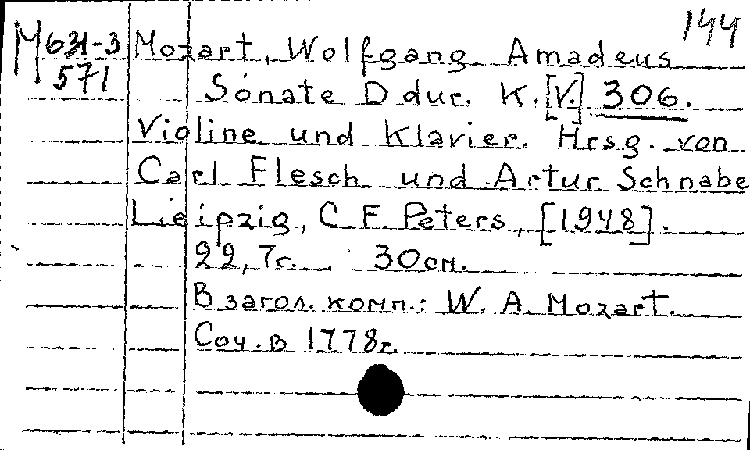 144
М 631-3 Mozart, Wolfgang Amadeus
571 Sonate D dur. K.[V.] 306.
Violine und Klavier. Hrsg. von
Carl Flesch und Artur Schnabe
Lieipzig, C. F. Peters, [1948].
22,7с. 30см.
В загол. комп.: W. A. Mozart.
Соч. в 1778г.